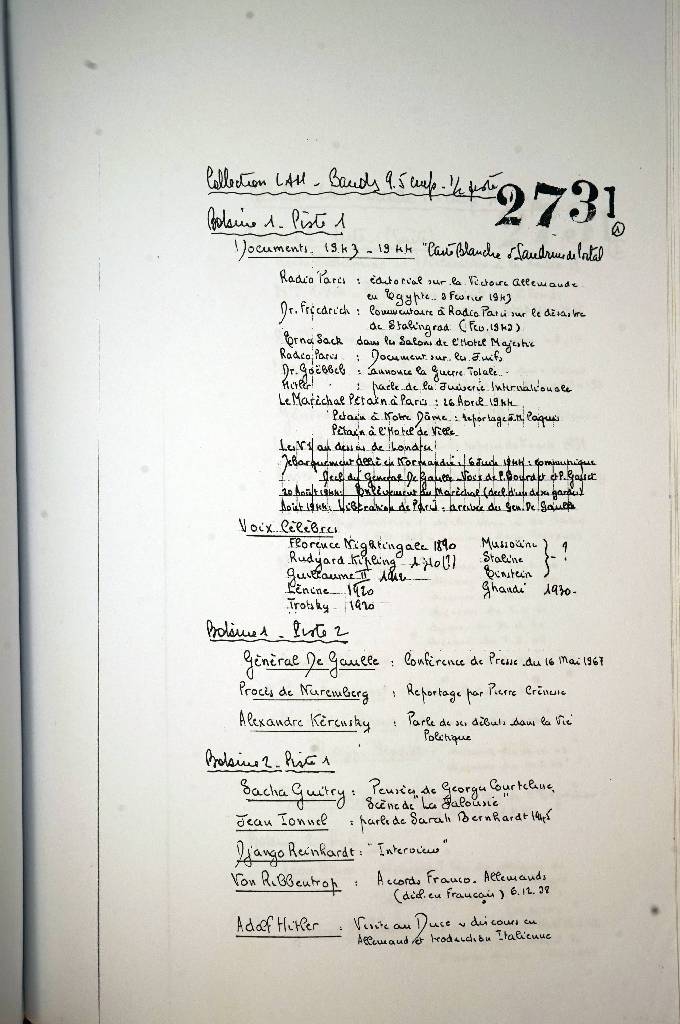 Collection LAH - Bande 9.5 cm/s - 1/2 piste
2731
1
Bobine 1 - Piste 1
Documents. 1943 - 1944 "Carte Blanche à
Radio Paris : éditorial sur la Victoire Allemande
en Egypte. 3 Février 1943
Dr. Friedrich : Commentaire à Radio Paris sur le désastre
de Stalingrad (Fev. 1943)
Erna Sack dans les Salons de l'Hotel Majestic
Radio Paris : Document sur les Juifs
Dr. Goëbbels : annonce la Guerre Totale -
Hitler : parle de la Juiverie Internationale
Le Maréchal Pétain à Paris : 26 Avril 1944
Pétain à Notre Dâme : reportage
Pétain à l'Hotel de Ville
Les V1 au dessus de Londres
Debarquement allié en Normandie : 6 Juin 1944 : communique
Decl. du Général De Gaulle - Voix de P. Bourdet et P.
20 Août 1944 : Enlèvement du Maréchal (decl. d'un de ses gardes)
Août 1944 : Libération de Paris : arrivée du Gen. De Gaulle
Voix Célèbres
Florence Nightingale 1890 Mussolini } ?
Rudyard Kipling - 1910(?) Staline } - ?
Guillaume II 1912 Einstein }
Lénine 1920 Ghandi 1930 -
Trotsky 1920
Bobine 1 - Piste 2
Général De Gaulle : Conférence de Presse du 16 Mai 1967
Procès de Nuremberg : Reportage par Pierre Crénesse
Alexandre Kérensky : Parle de ses débuts dans la Vie
Politique
Bobine 2 - Piste 1
Sacha Guitry : Pensées de Georges Courteline,
Scène de "La Jalousie"
Jean Yonnel : parle de Sarah Bernhardt 1945
Django Reinhardt : "Interview"
Von Ribbentrop : Accords Franco-Allemands
(décl. en Français) 6.12.38
Adolf Hitler : Visite au Duce - discours en
Allemand et traduction Italienne